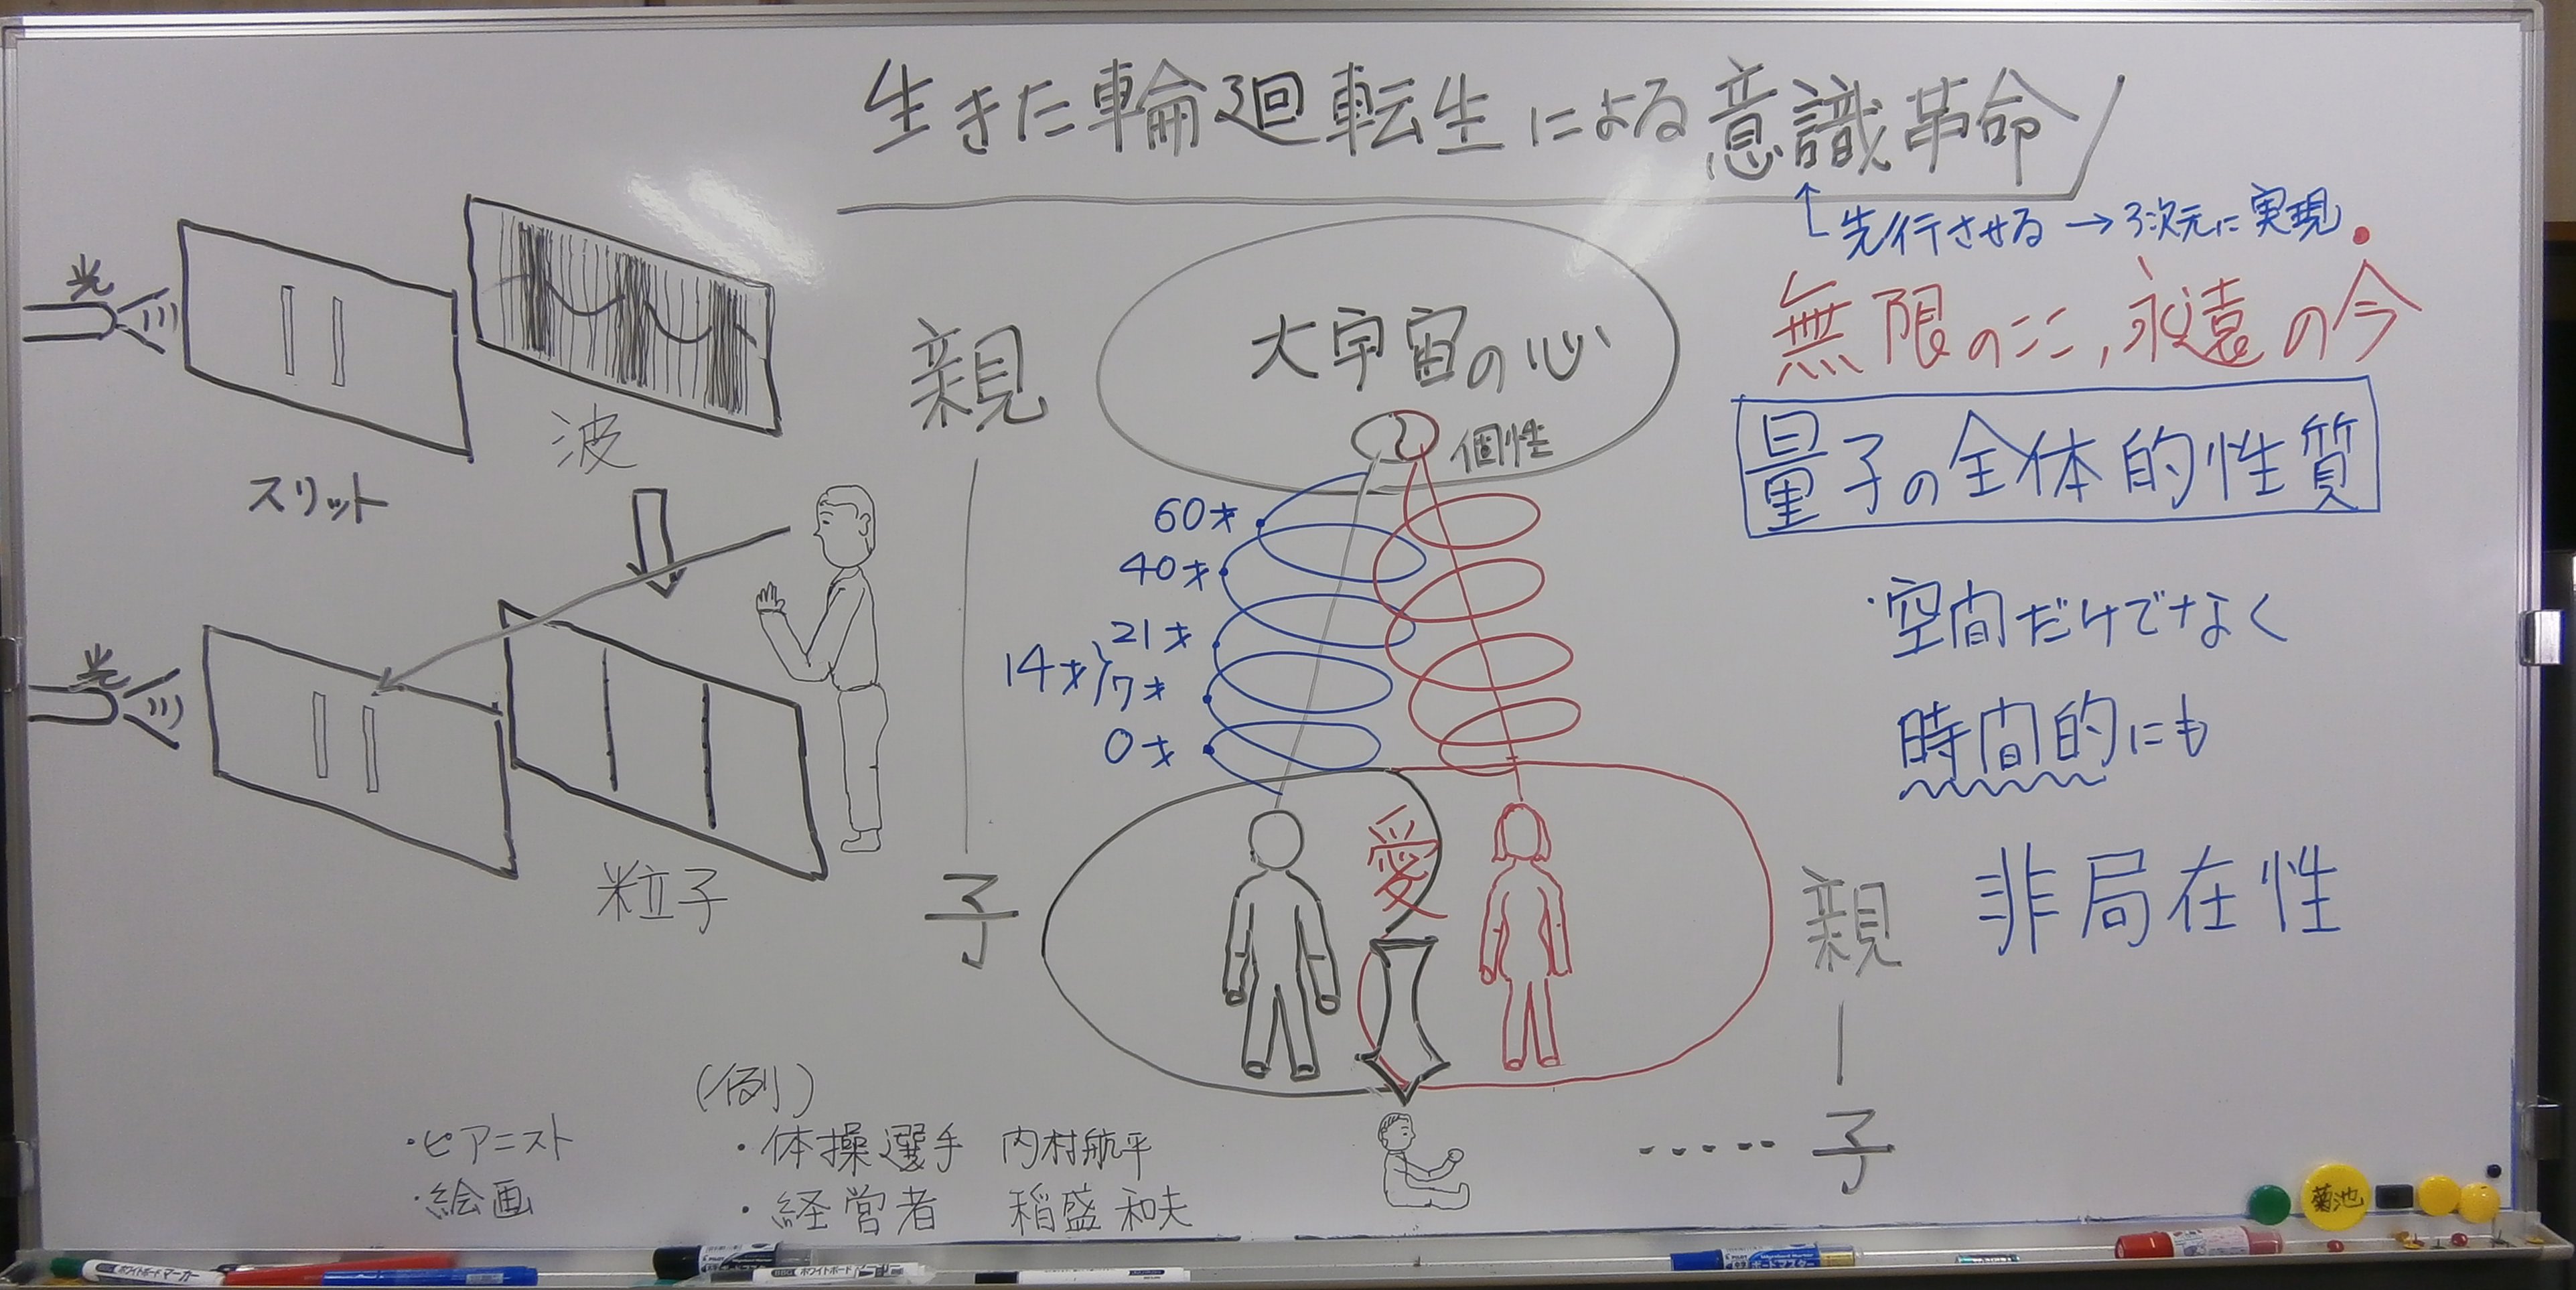 生きた輪廻転生による意識革命
先行させる → 3次元に実現
光
スリット
波
光
粒子
親
子
大宇宙の心
個性
60才
40才
21才
14才
7才
0才
愛
無限のここ,永遠の今
量子の全体的性質
・空間だけでなく
時間的にも
非局在性
親
子
(例)
・ピアニスト
・絵画
・体操選手 内村航平
・経営者 稲盛和夫
菊池
ホワイトボードマーカー
ホワイトボードマーカー
ボードマスター